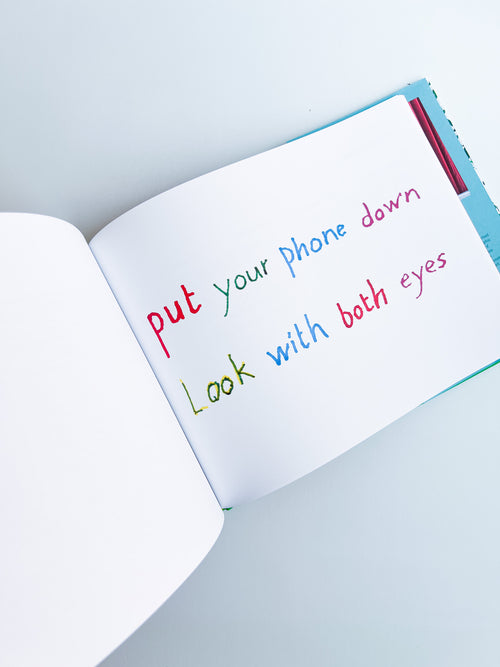 put your phone down
Look with both eyes